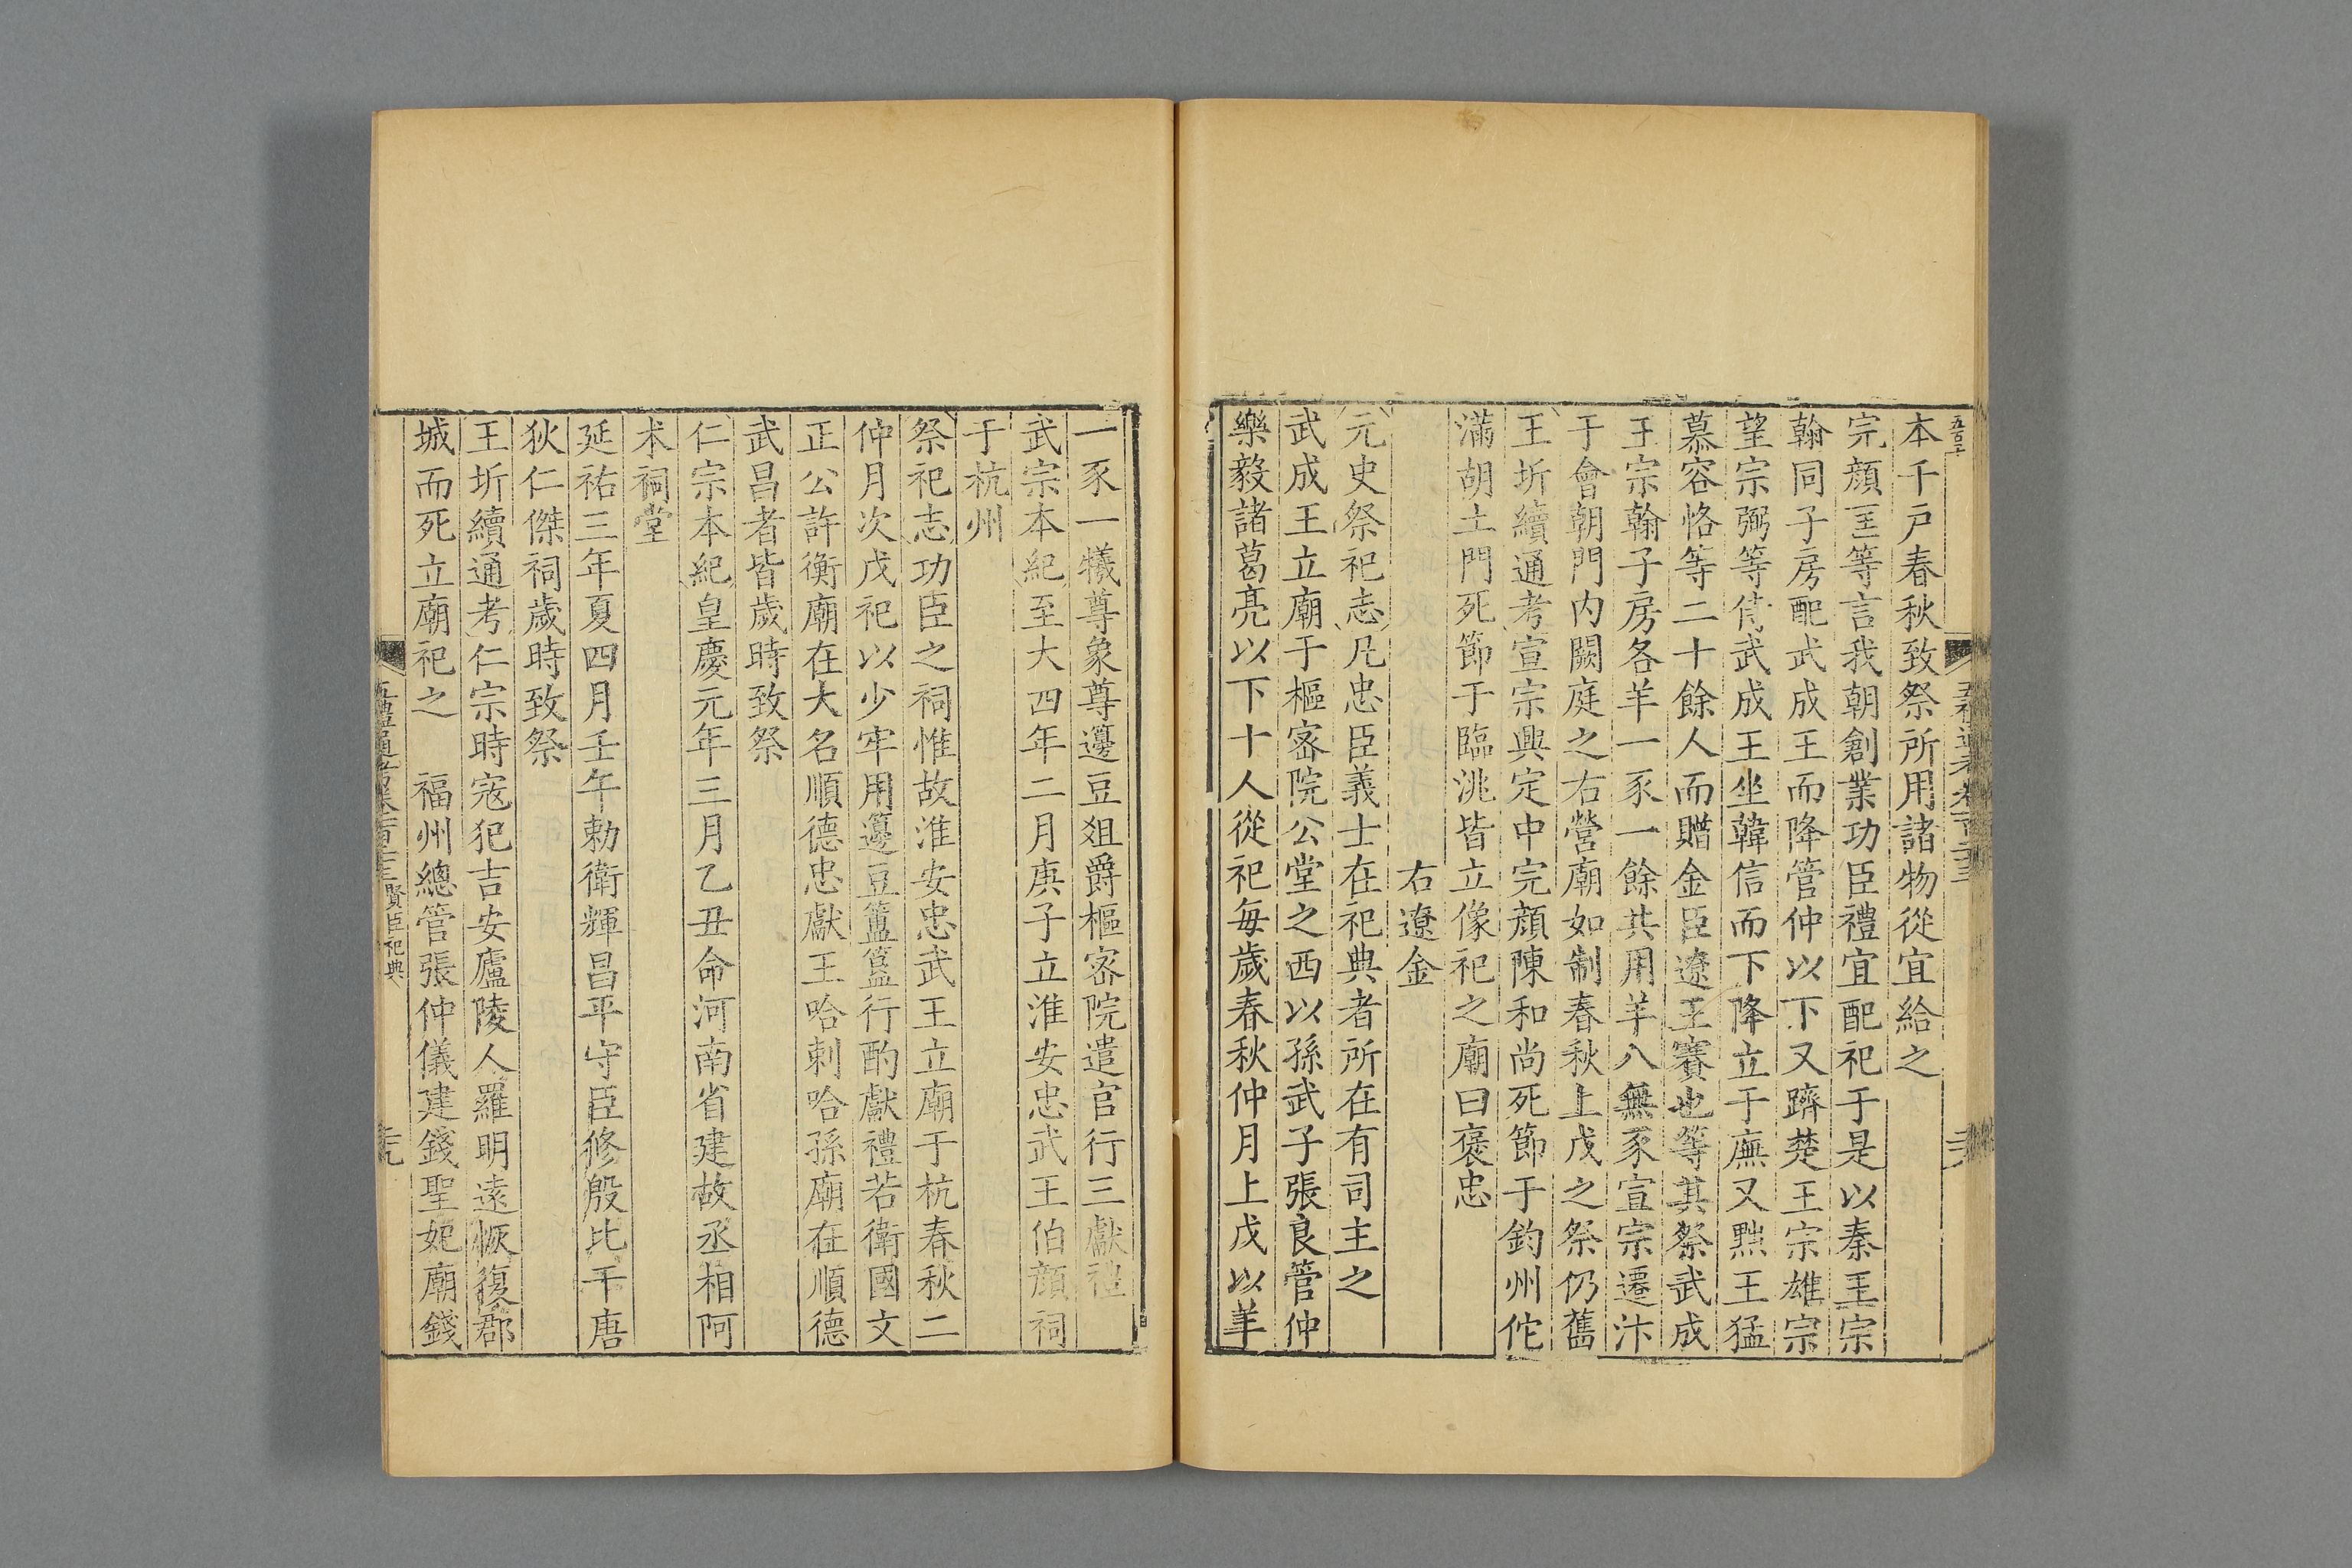 本千戸春秋致祭所用諸物從宜給之
完顔匡等言我朝創業功臣禮宜配祀于是以秦王宗
翰同子房配武成王而降管仲以下又躋楚王宗雄宗
望宗弼等侍武成王坐韓信而下降立于廡又黜王猛
慕容恪等二十餘人而贈金臣遼王賽也等其祭武成
王宗翰子房各羊一豕一餘共用羊八無豕宣宗遷汴
于會朝門内闕庭之右營廟如制春秋上戊之祭仍舊
王圻續通考宣宗興定中完顔陳和尚死節于鈞州佗
滿胡土門死節于臨洮皆立像祀之廟曰褒忠
右遼金
元史祭祀志凡忠臣義士在祀典者所在有司主之
武成王立廟于樞密院公堂之西以孫武子張良管仲
樂毅諸葛亮以下十人從祀每歲春秋仲月上戊以羊
一豕一犧尊象尊籩豆俎爵樞密院遣官行三獻禮
武宗本紀至大四年二月庚子立淮安忠武王伯顔祠
于杭州
祭祀志功臣之祠惟故淮安忠武王立廟于杭春秋二
仲月次戊祀以少牢用籩豆簠簋行酌獻禮若衛國文
正公許衡廟在大名順德忠獻王哈剌哈孫廟在順德
武昌者皆歲時致祭
仁宗本紀皇慶元年三月乙丑命河南省建故丞相阿
术祠堂
延祐三年夏四月壬午勅衛輝昌平守臣修殷比干唐
狄仁傑祠歲時致祭
王圻續通考仁宗時寇犯吉安廬陵人羅明遠恢復郡
城而死立廟祀之　福州總管張仲儀建錢聖妃廟錢
賢臣祀典